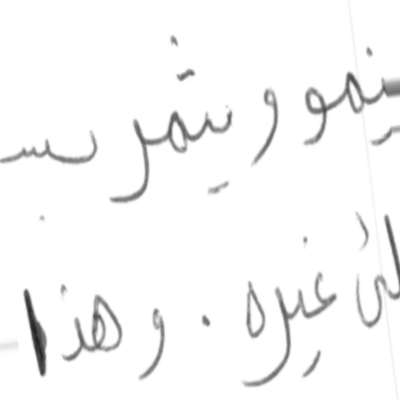 ينمو ويثمر بسـ
لى غيره . وهذا